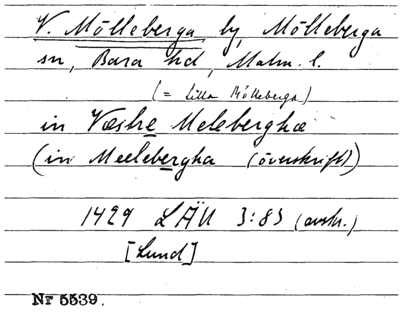 V. Mölleberga by, Mölleberga
sn, Bara hd, Malm. l.
(= Lilla Mölleberga)
in Væstre Meleberghæ
(in Meelebergha (överskrift))
1429 LÄU 3:83 (avskr.)
[Lund]
Nr 5539.